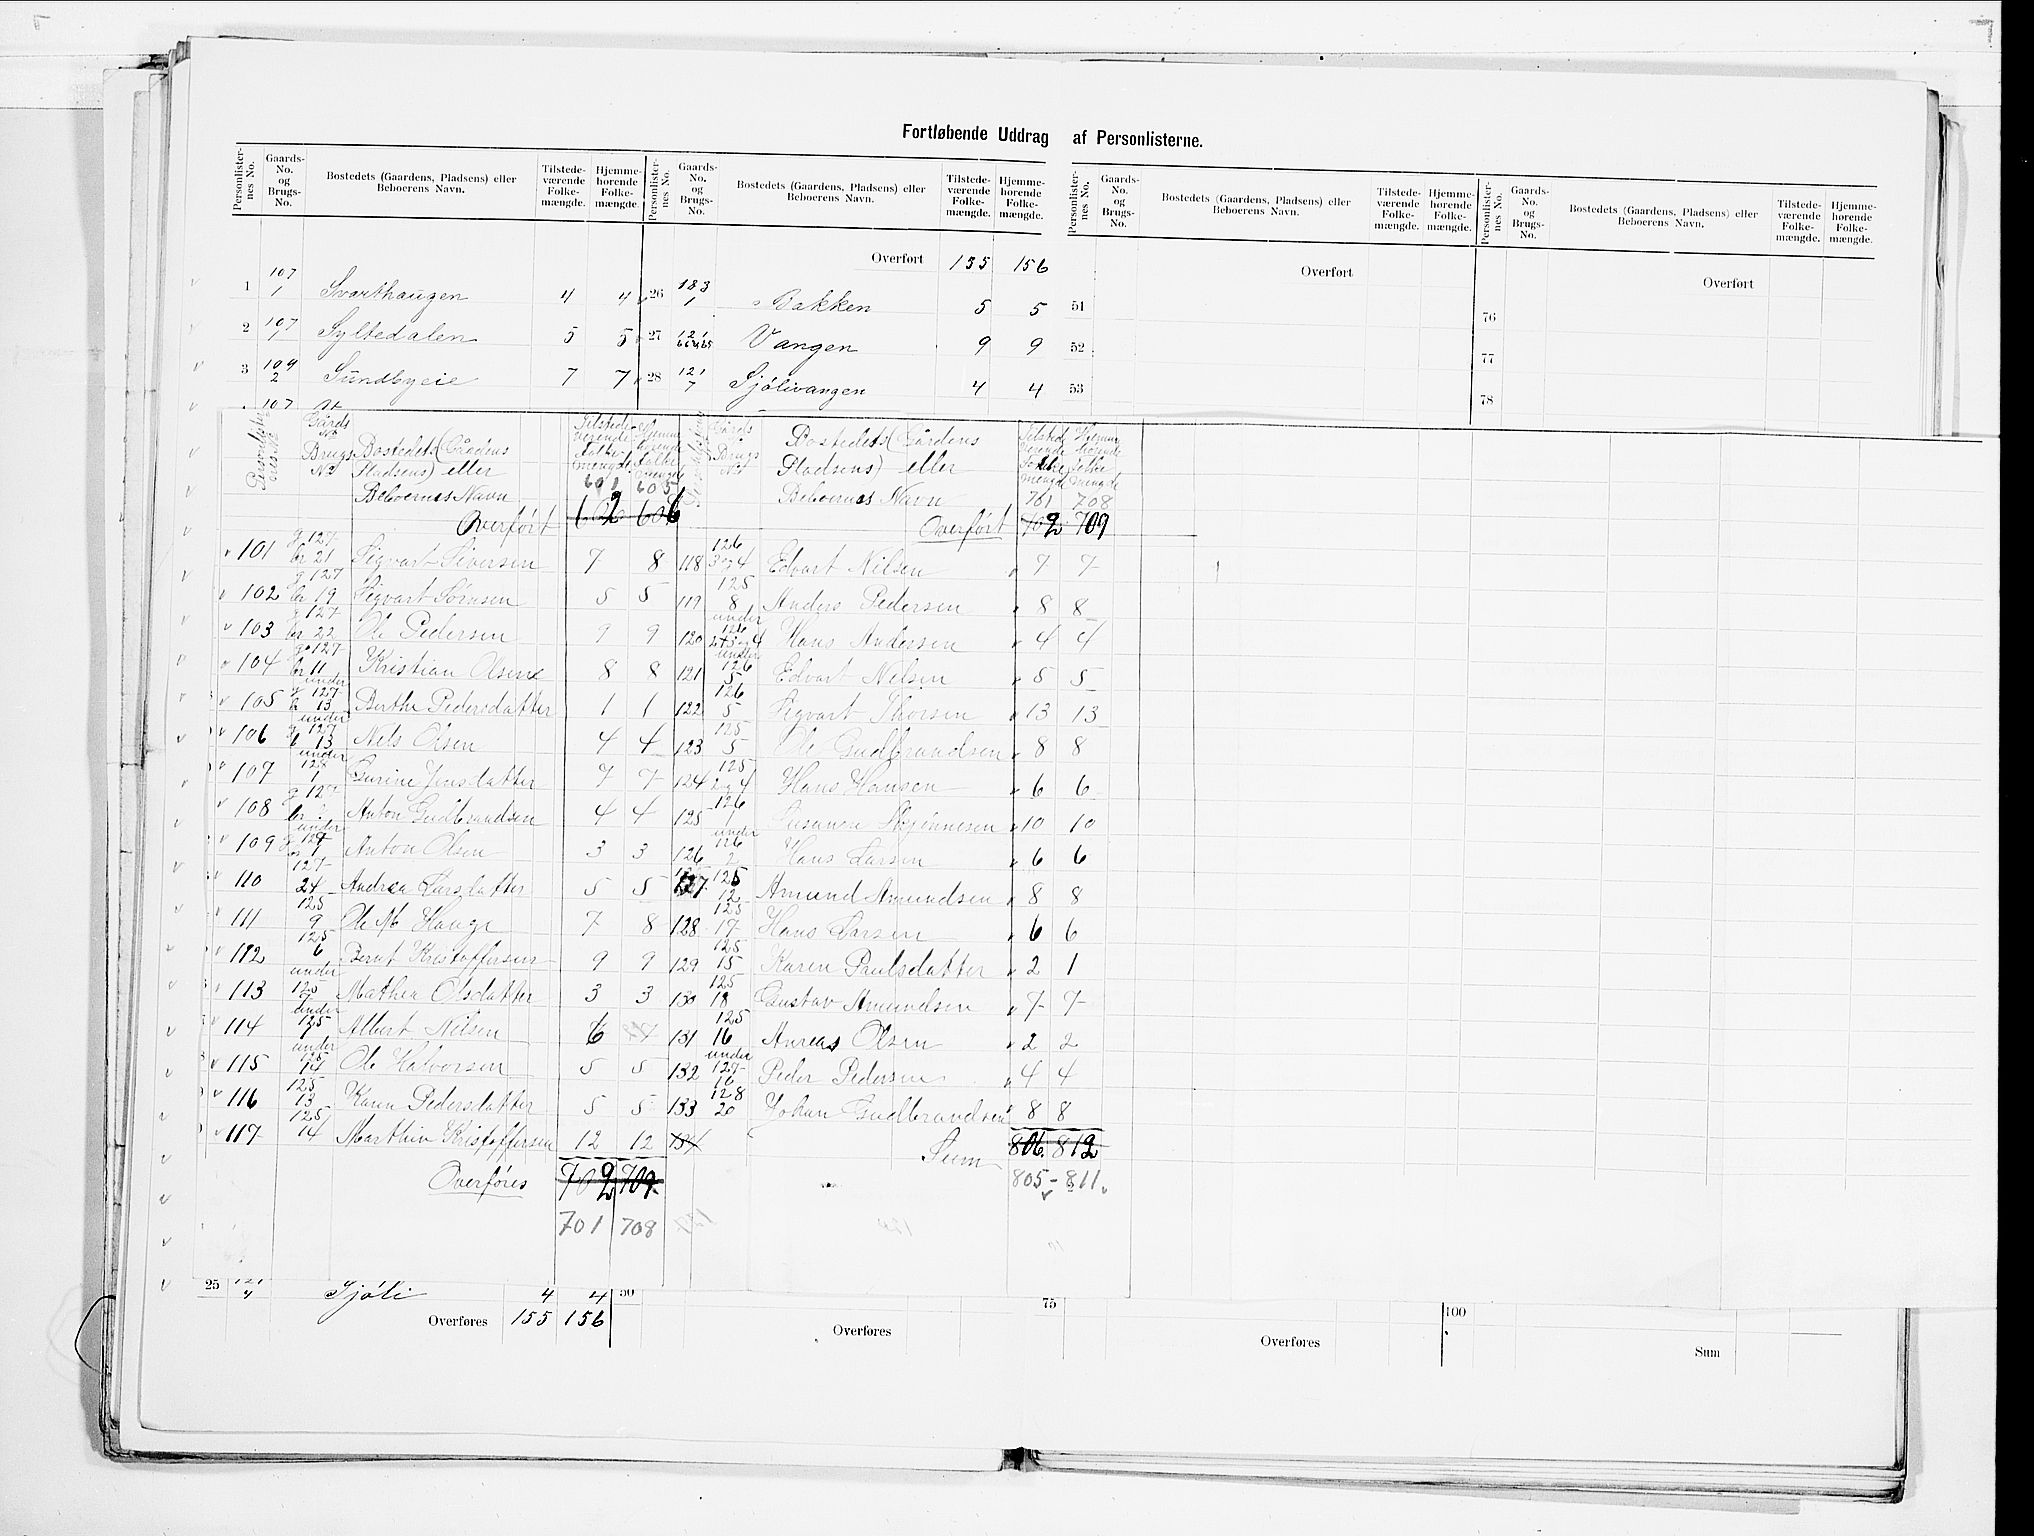 Fortløbende Uddrag af Personlisterne.
Personlister-nes No. | Gaards-No. og Brugs-No. | Bostedets (Gaardens, Pladsens) eller Beboerens Navn. | Tilstede-værende Folke-mængde. | Hjemme-hørende Folke-mængde. | Personlister-nes No. | Gaards-No. og Brugs-No. | Bostedets (Gaardens, Pladsens) eller Beboerens Navn. | Tilstede-værende Folke-mængde. | Hjemme-hørende Folke-mængde. | Personlister-nes No. | Gaards-No. og Brugs-No. | Bostedets (Gaardens, Pladsens) eller Beboerens Navn. | Tilstede-værende Folke-mængde. | Hjemme-hørende Folke-mængde. | Personlister-nes No. | Gaards-No. og Brugs-No. | Bostedets (Gaardens, Pladsens) eller Beboerens Navn. | Tilstede-værende Folke-mængde. | Hjemme-hørende Folke-mængde.
Overført 155 156 Overført Overført
1 107 1 Svarthaugen 4 4 26 183 1 Bakken 5 5 51 76
2 107 1 Syltedalen 5 5 27 121 Vangen 9 9 52 77
3 109 2 Sundbyeie 7 7 28 121 7 Sjölivangen 4 4 53 78
Gårds No Brugs No Bostedets (Gårdens Pladsens) eller Beboernes Navn Tilstedeværende Folkemengde Hjemmehörende Folkemengde Bostedets (Gårdens Pladsens) eller Beboernes Navn Tilstedeværende Folkemengde Hjemmehörende Folkemengde
601 605 701 708
Overfört 602 606 Overfört 702 709
101 g 127 br 21 Sigvart Siversen 7 8 118 126 3 og 4 Edvart Nilsen 7 7
102 g 127 br 19 Sigvart Sörnsen 5 5 119 125 8 Anders Pedersen 8 8
103 g 127 br 22 Ole Pedersen 9 9 120 under 126 Hans Andersen 4 4
104 g 127 br 11 Kristian Olsen 8 8 121 under 126 5 Edvart Nilsen 5 5
105 under g 127 13 Berthe Pedersdatter 1 1 122 126 5 Sigvart Thorsen 13 13
106 under g 127 13 Nels Olsen 4 4 123 125 5 Ole Gudbrandsen 8 8
107 under 128 1 Gurine Jensdatter 7 7 124 125 2 og 4 Hans Hansen 6 6
108 g 127 br Anton Gudbrandsen 4 4 125 126 1 Skjönnesen 10 10
109 under g 127 1 Anton Olsen 3 3 126 under 126 2 Hans Larsen 6 6
110 127 24 Andrea Larsdatter 5 5 127 125 12 Amund Amundsen 8 8
111 125 9 Ole M Hauge 7 8 128 125 17 Hans Larsen 6 6
112 125 6 Bernt Kristoffersen 9 9 129 125 15 Karen Paulsdatter 2 1
113 under 125 7 Mathea Olsdatter 3 3 130 125 18 Gustav Amundsen 7 7
114 under 125 Albert Nilsen 6 131 125 16 Anreas Olsen 2 2
115 under 125 14 Ole Halvorsen 5 5 132 under 127 16 Peder Pedersen 4 4
116 125 13 Karen Pedersdatter 5 5 133 128 20 Johan Gudbrandsen 8 8
117 125 14 Marthin Kristoffersen 12 12 134 Sum 806 812
Overføres 702 709 805 - 811
701 708
25 121 4 Sjöli 4 4 50 75 100
Overføres 155 156 Overføres Overføres Sum